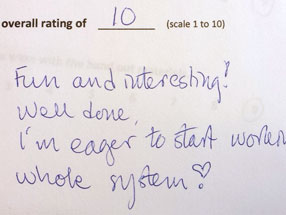 overall rating of 10 (scale 1 to 10)
Fun and interesting!
Well done,
I'm eager to start workin
whole system!